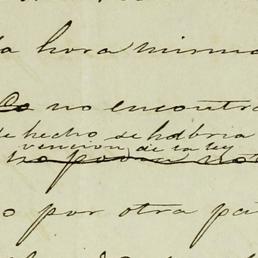 la hora misma
no encontra
de hecho se habria
vencion de la ley
no podria
o por otra pa